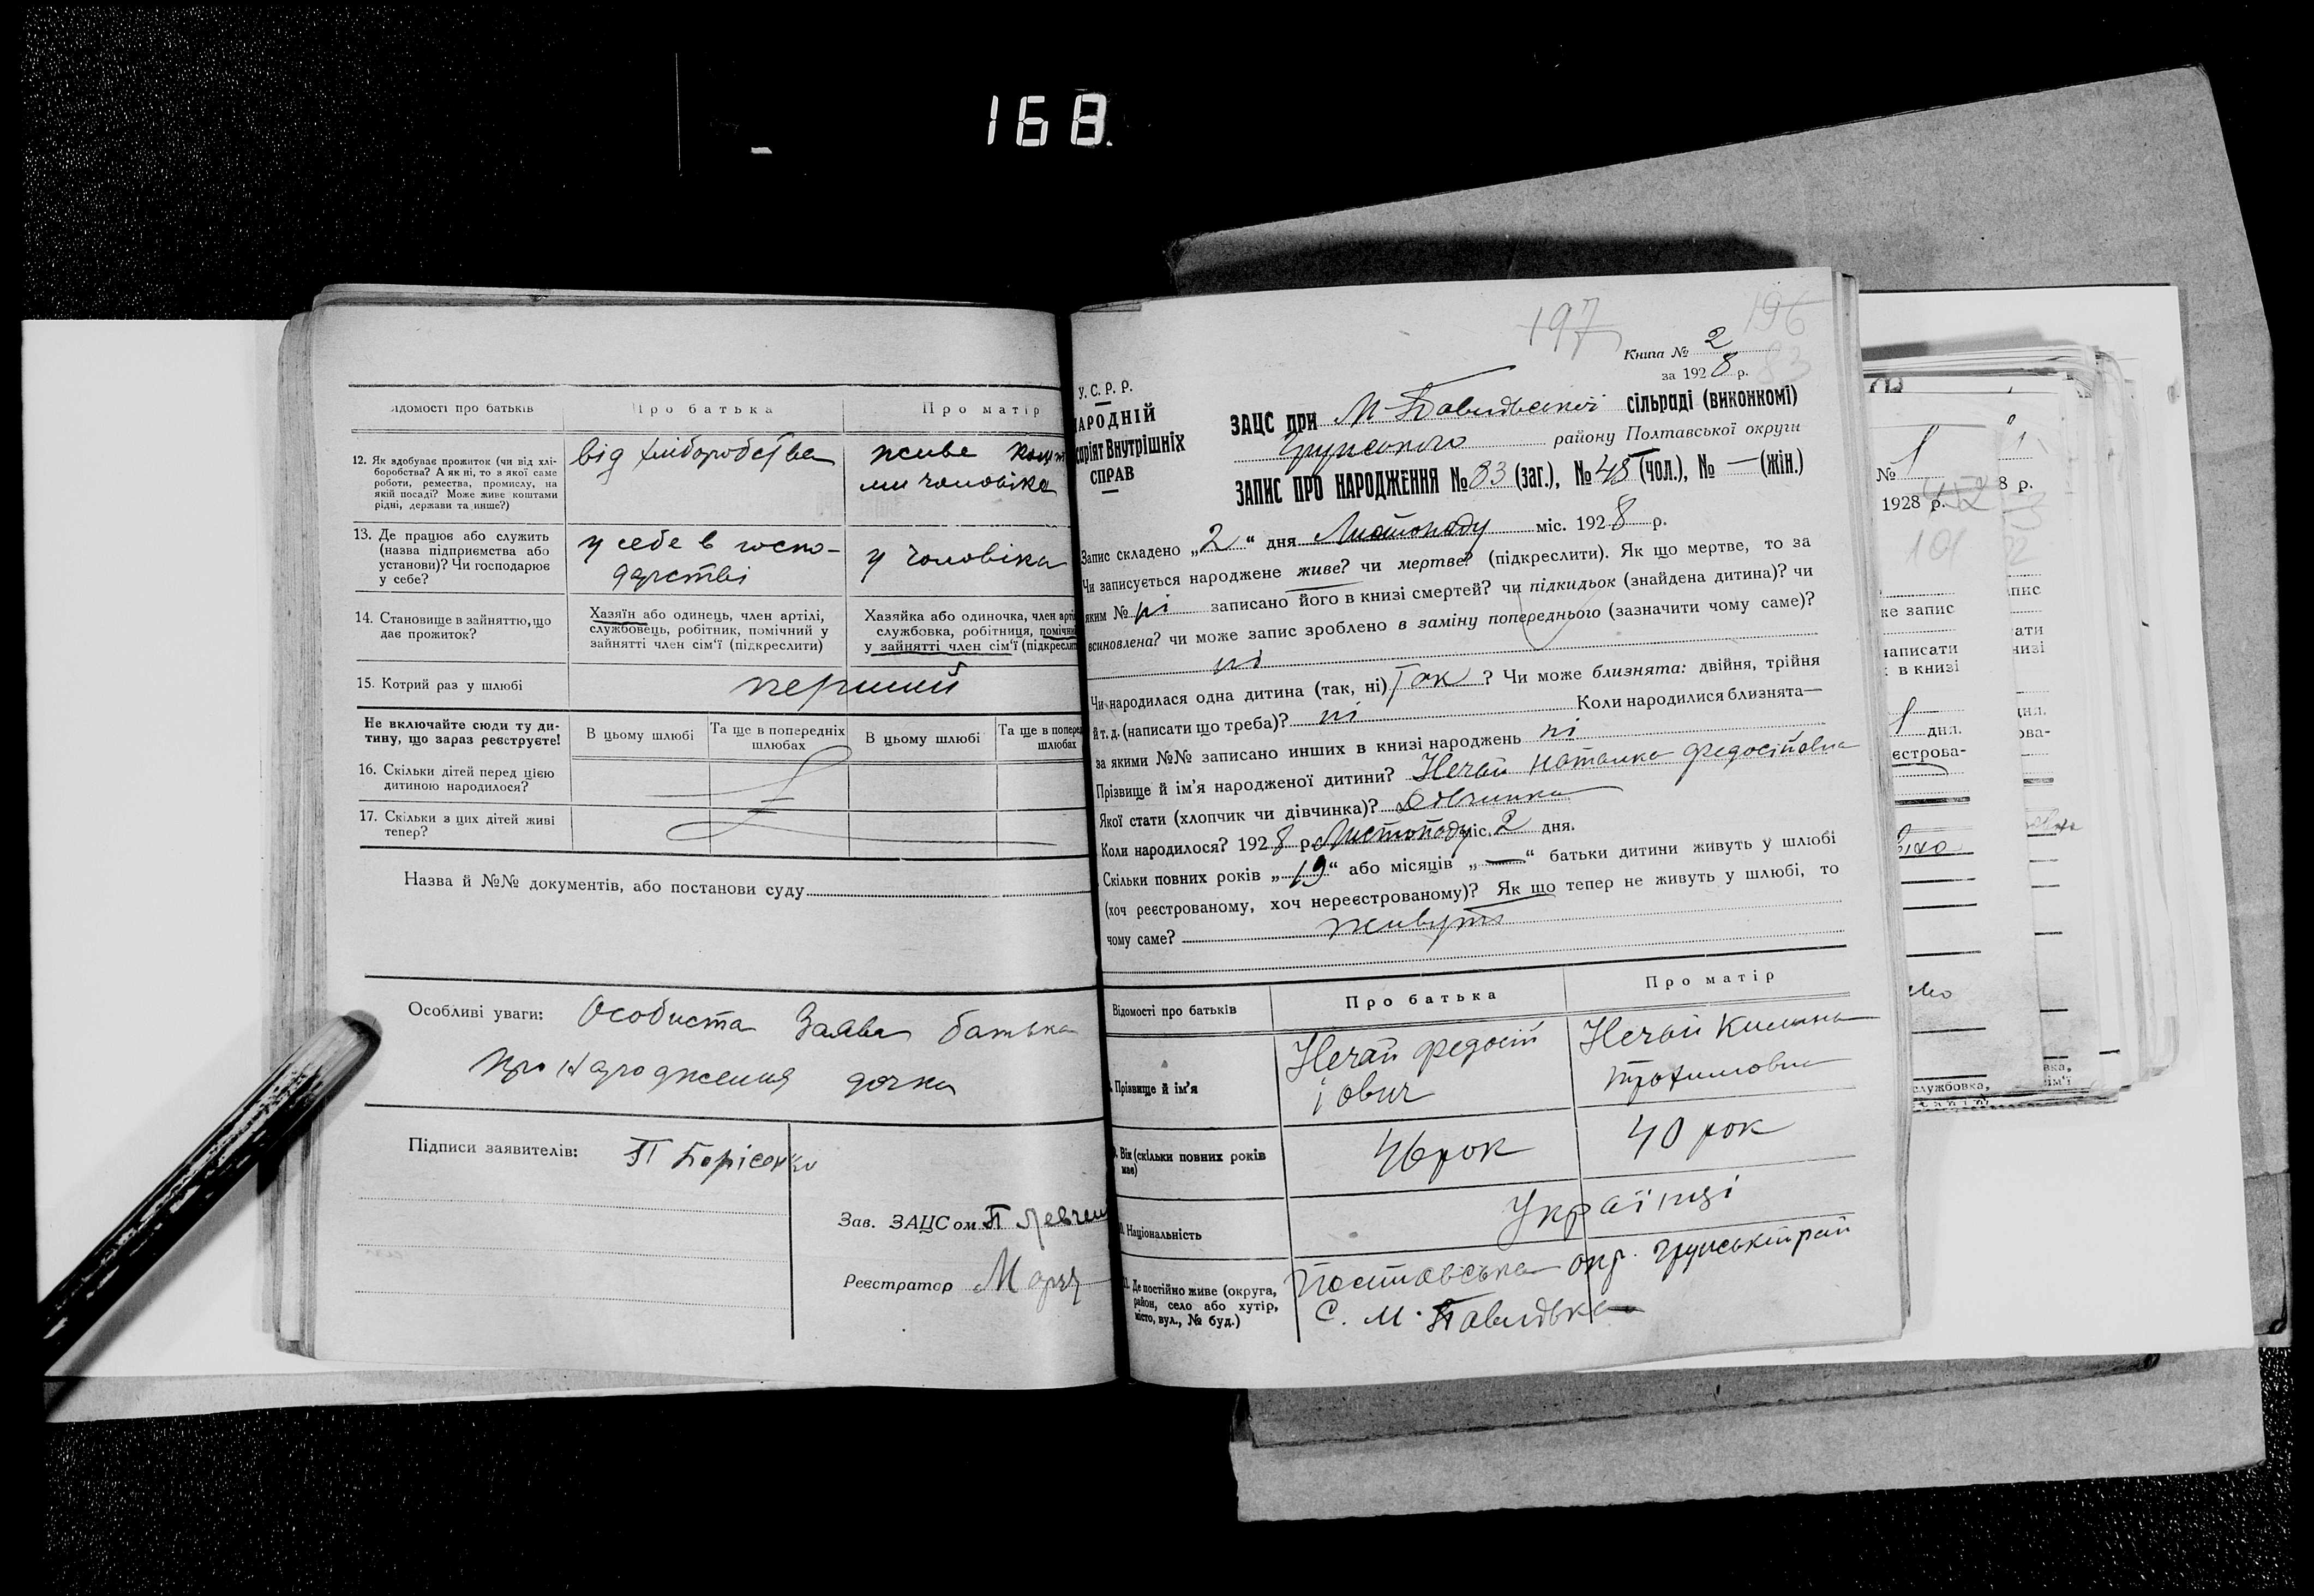 168.
Відомості про батьків
Про батька
Про матір
12. Як здобуває прожиток (чи від хлі-
боробства? А як ні, то з якої саме
роботи, ремества, промислу, на
якій посаді? Може живе коштами
рідні, держави та инше?)
від хліборобства
живе кошт
ми чоловіка
13. Де працює або служить
(назва підприємства або
установи)? Чи господарює
у себе?
у себе в госпо-
дарстві
у чоловіка
14. Становище в зайняттю, що
дає прожиток?
Хазяїн або одинець, член артілі,
службовець, робітник, помічний у
зайнятті член сім'ї (підкреслити)
Хазяйка або одиночка, член арті
службовка, робітниця, помічни
у зайнятті член сім'ї (підкреслит
15. Котрий раз у шлюбі
перший
Не включайте сюди ту ди-
тину, що зараз реєструєте!
В цьому шлюбі
Та ще в попередніх
шлюбах
В цьому шлюбі
Та ще в поперед
шлюбах
16. Скільки дітей перед цією
дитиною народилося?
17. Скільки з цих дітей живі
тепер?
Назва й №№ документів, або постанови суду
Особливі уваги: Особиста Заява батька
про народження дочки
Підписи заявителів: П Борісенко
Зав. ЗАЦСом П Левчен
Реєстратор
197
196
Книга № 2
83
за 1928 р.
У. С. Р. Р.
НАРОДНІЙ
саріят Внутрішніх
СПРАВ
ЗАЦС при М-Павлівській сільраді (виконкомі)
Грунського району Полтавської округи
ЗАПИС ПРО НАРОДЖЕННЯ № 83 (заг.), № 48 (чол.), № — (жін.)
Запис складено „2" дня Листопаду міс. 1928 р.
Чи записується народжене живе? чи мертве? (підкреслити). Як що мертве, то за
яким № ні записано його в книзі смертей? чи підкидьок (знайдена дитина)? чи
всиновлена? чи може запис зроблено в заміну попереднього (зазначити чому саме)?
ні
Чи народилася одна дитина (так, ні) Так ? Чи може близнята: двійня, трійня
й т. д. (написати що треба)? ні Коли народилися близнята—
за якими №№ записано инших в книзі народжень ні
Прізвище й ім'я народженої дитини? Нечай Наталка Федосіївна
Якої стати (хлопчик чи дівчинка)? Дівчинка
Коли народилося? 1928 р. Листопаду міс. 2 дня.
Скільки повних років „19" або місяців „—" батьки дитини живуть у шлюбі
(хоч реєстрованому, хоч нереєстрованому)? Як що тепер не живуть у шлюбі, то
чому саме? живуть
Відомості про батьків
Про батька
Про матір
Прізвище й ім'я
Нечай Федосій
Іович
Нечай Килина
Трохимовна
Вік (скільки повних років
має)
46 рок
40 рок
Національність
Українці
Де постійно живе (округа,
район, село або хутір,
місто, вул., № буд.)
Полтавська окр. Грунський рай
С. М. Павлівка
№ 1
1928 р.
8 р.
101
же запис
написати
в книзі
дня.
естрова-
службовка,